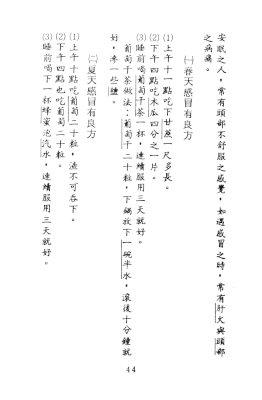 安眠之人,常有頭部不舒服之感覺,如遇感冒之時,常有肝火與頭部
之病痛。
㈠春天感冒有良方
⑴上午十一點吃下甘蔗一尺多長。
⑵下午四點吃木瓜四分之一片。
⑶睡前喝葡萄干茶一杯,連續服用三天就好。
葡萄干茶做法:葡萄干二十粒,下鍋放下一碗半水,滾後十分鐘就
好,滲一些鹽。
㈡夏天感冒有良方
⑴上午十點吃葡萄二十粒,渣不可吞下。
⑵下午四點也吃葡萄二十粒。
⑶睡前喝下一杯蜂蜜泡汽水,連續服用三天就好。
44